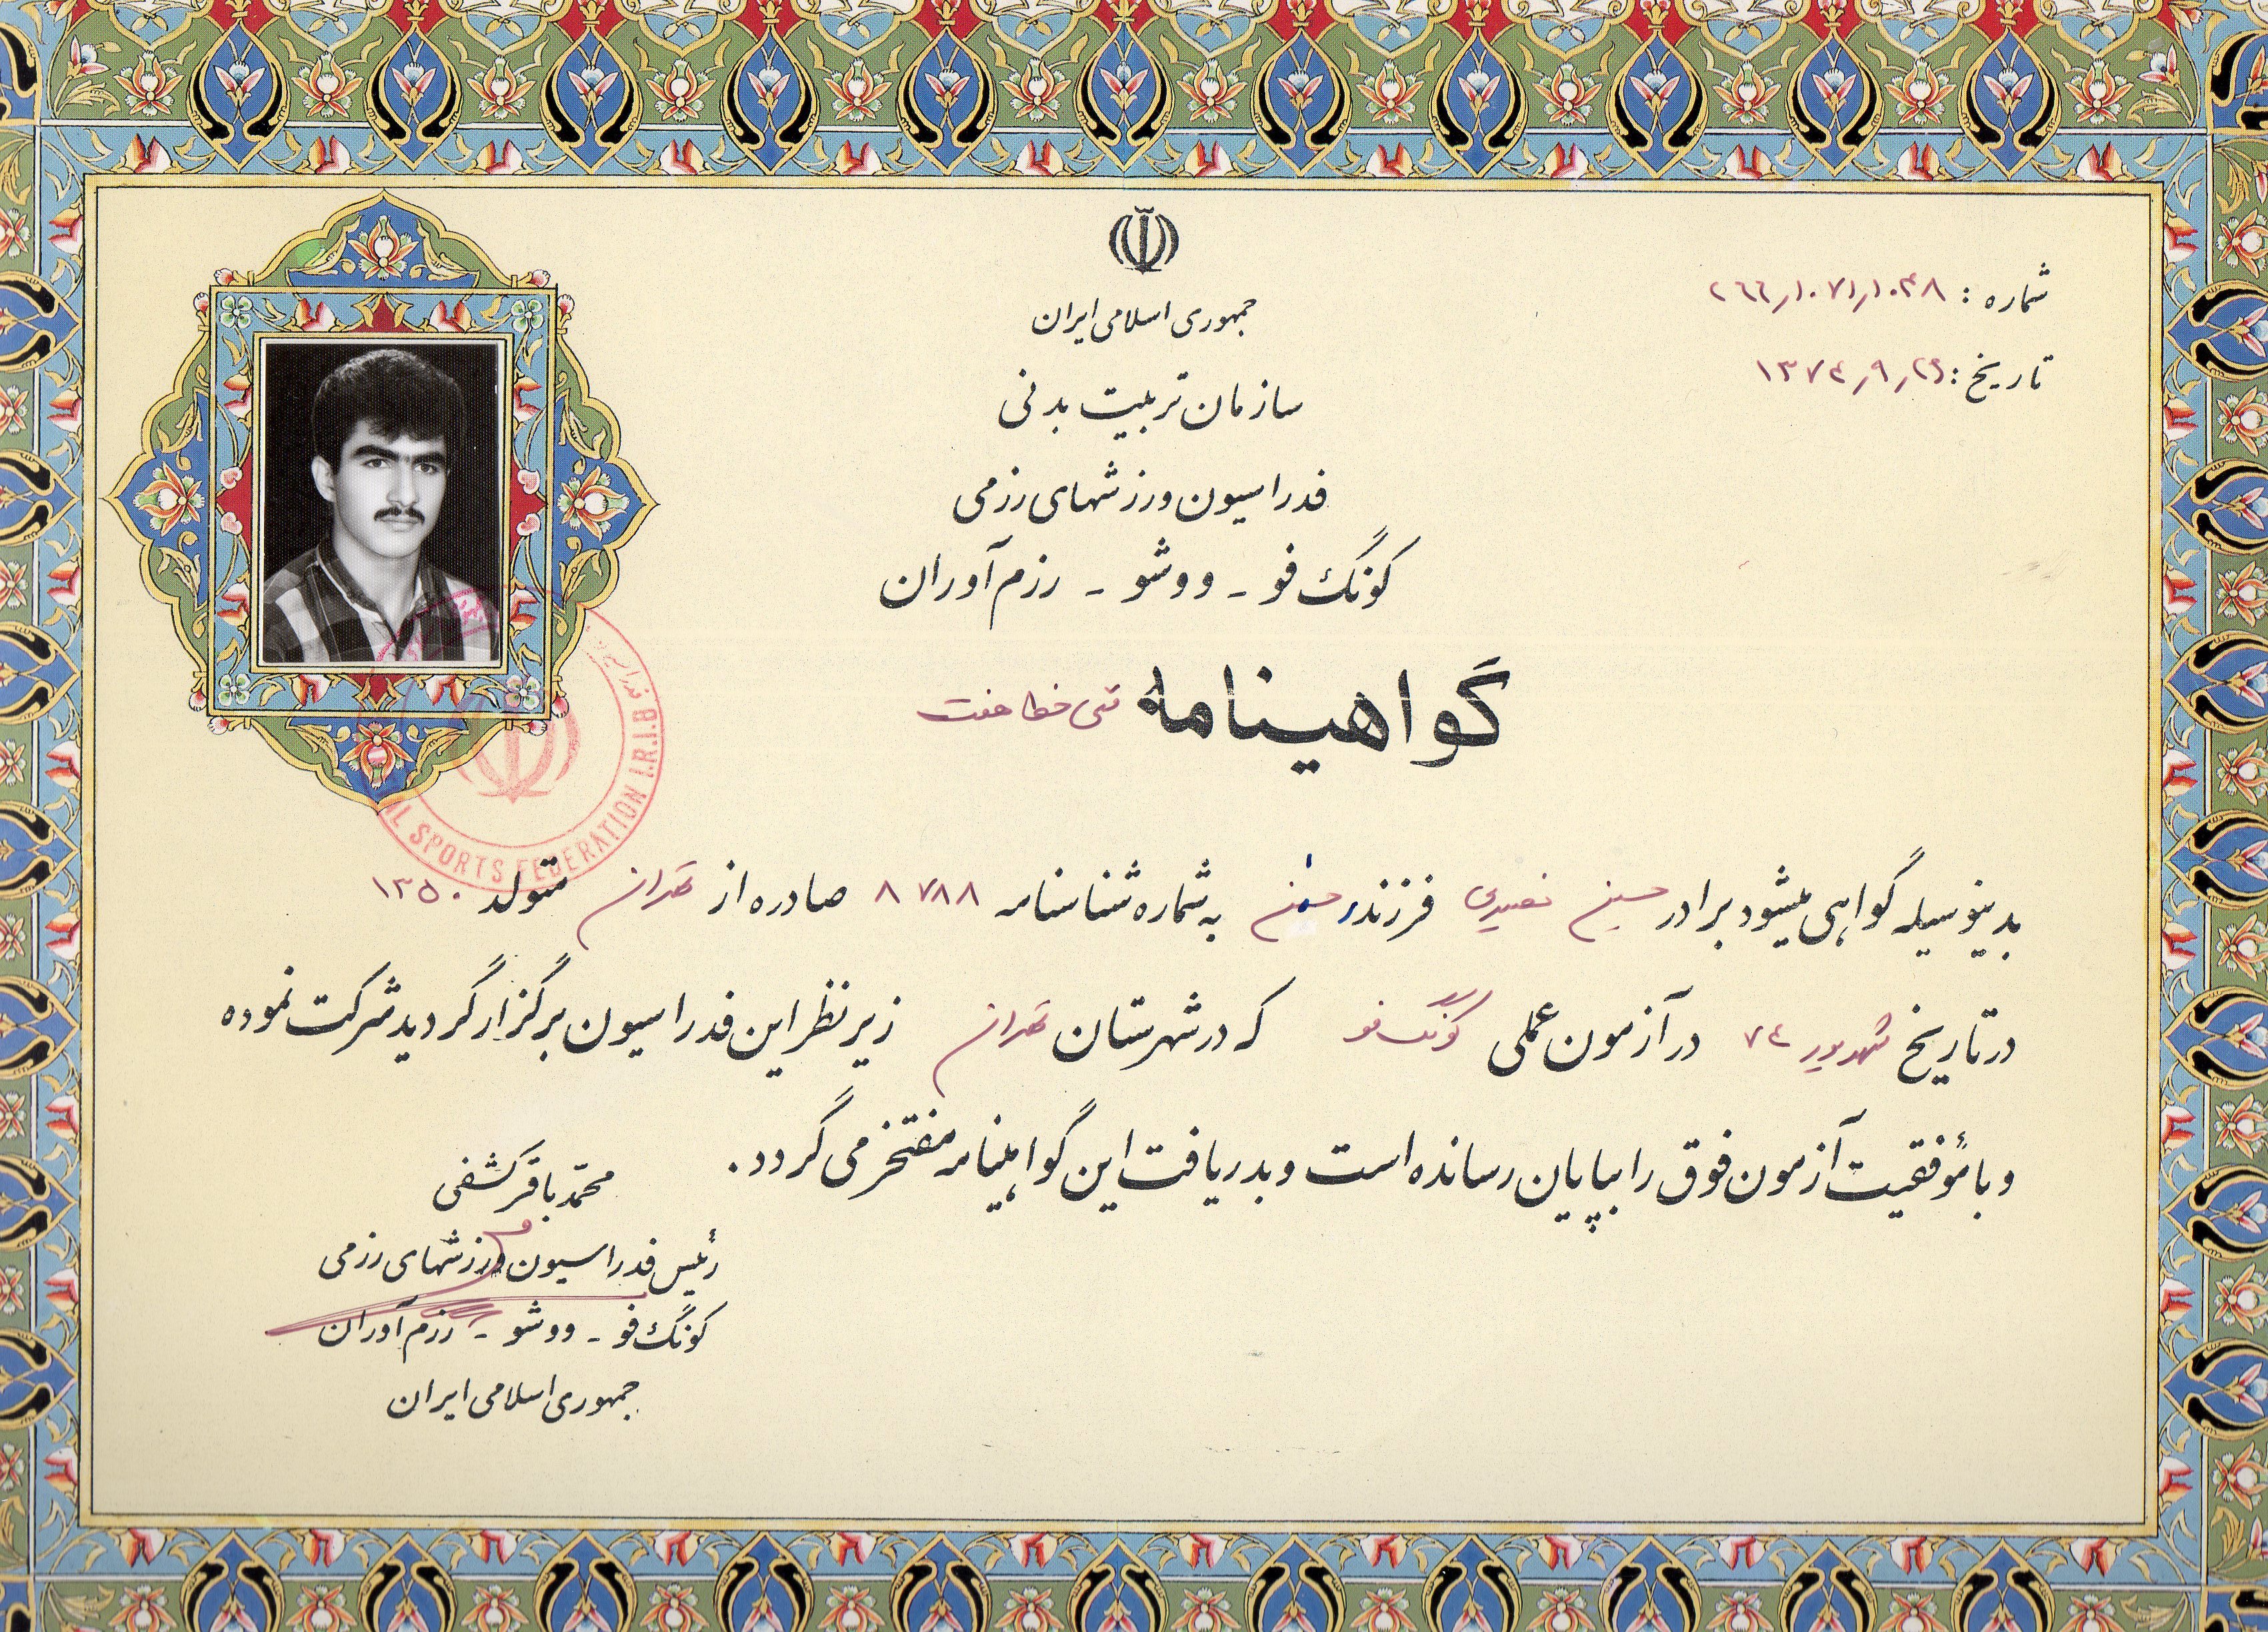 جمهوری اسلامی ایران
سازمان تربیت بدنی
فدراسیون ورزشهای رزمی
کونگ فو - ووشو - رزم آوران
شماره :
تاریخ : ۱۳۷۴٫۹٫۲۶
گواهینامهٔ
بدینوسیله گواهی میشود برادر حسین فرزند به شماره شناسنامه ۸۷۸۸ صادره از تهران متولد ۱۳۵۰
در تاریخ شهریور ۷۴ در آزمون عملی کونگ فو که در شهرستان تهران زیر نظر این فدراسیون برگزار گردید شرکت نموده
و با مؤفقیت آزمون فوق را بپایان رسانده است و بدریافت این گواهینامه مفتخر می گردد .
محمّد باقر کشفی
رئیس فدراسیون ورزشهای رزمی
کونگ فو - ووشو - رزم آوران
جمهوری اسلامی ایران
SPORTS FEDERATION I.R.I.B